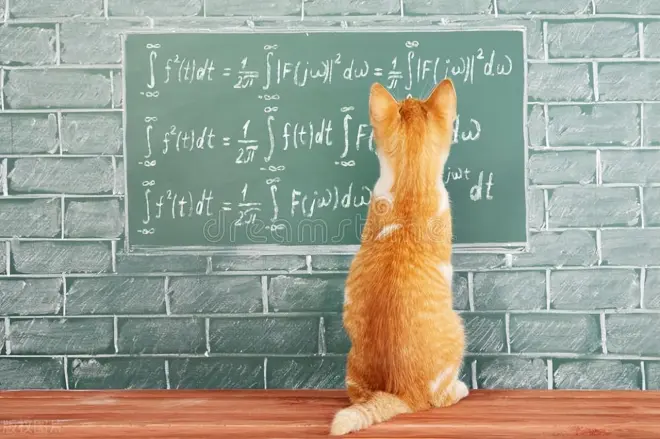 ∫_{-∞}^{∞} f²(t)dt = 1/2π ∫_{-∞}^{∞} |F(jω)|²dω = 1/2π ∫_{-∞}^{∞} |F(jω)|²dω
∫_{-∞}^{∞} f²(t)dt = 1/2π ∫_{-∞}^{∞} f(t)dt ∫_{-∞}^{∞} F ω)dω
∫_{-∞}^{∞} f²(t)dt = 1/2π ∫_{-∞}^{∞} F(jω)dω jωt dt
dreamstime